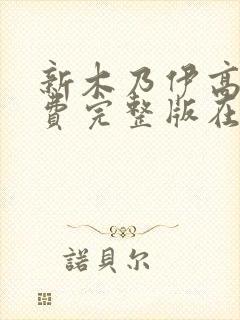 新木乃伊高
费完整版在
諾貝尔